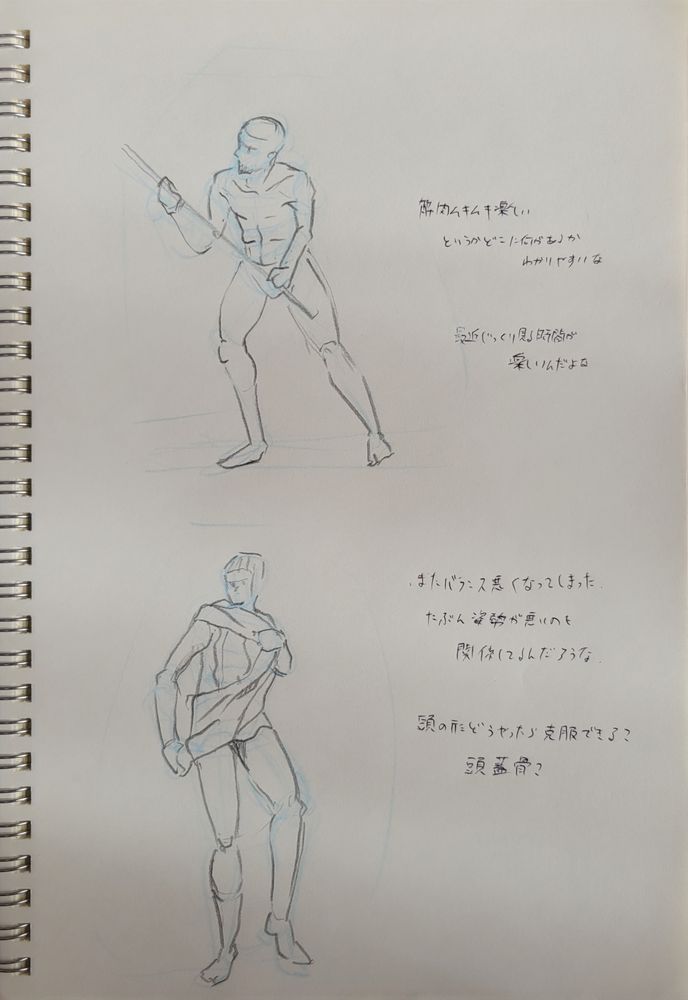 筋肉ムキムキ楽しい
というかどこに何があるか
わかりやすいな
最近じっくり見る時間が
楽しいんだよな
またバランス悪くなってしまった.
たぶん姿勢が悪いのも
関係してるんだろうな.
頭の形どうやったら克服できる?
頭蓋骨?